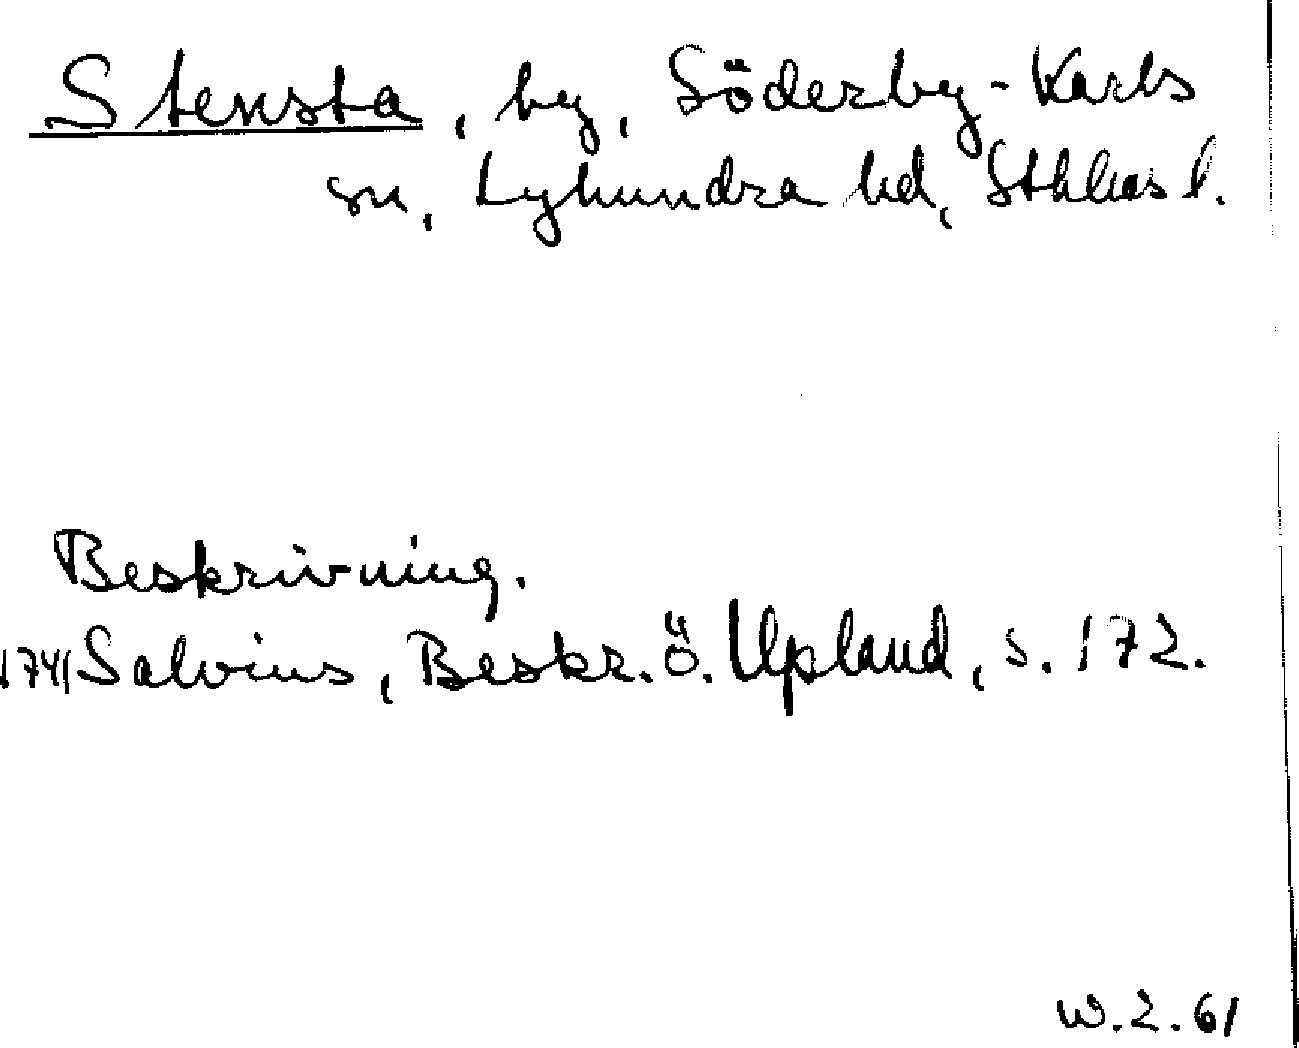 Stensta, by, Söderby-Karls
sn, Lyhundra hd, Sthlms l.
Beskrivning.
1741 Salvius, Beskr. ö. Upland, s. 172.
W.2.61